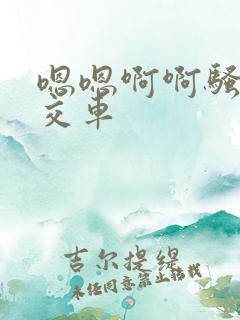 嗯嗯啊啊骚
交车
吉尔提缇
未经同意禁止转载